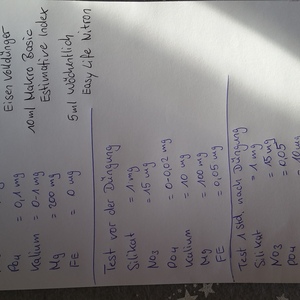 Eisen Volldünger
PO4 = 0,1 mg
Kalium = 0-1 mg
10ml Makro Basic
Estimative Index
Mg = 200 mg
FE = 0 mg
5ml Wöchentlich
Easy Life Nitron
Test vor der Düngung
Silikat = 1 mg
NO3 = 15 mg
PO4 = 0-0,02 mg
Kalium = 10 mg
Mg = 100 mg
FE = 0,05 mg
Test 1 Std. nach Düngung
Silikat = 1 mg
NO3 = 15 mg
PO4 = 0,05
= 10 mg